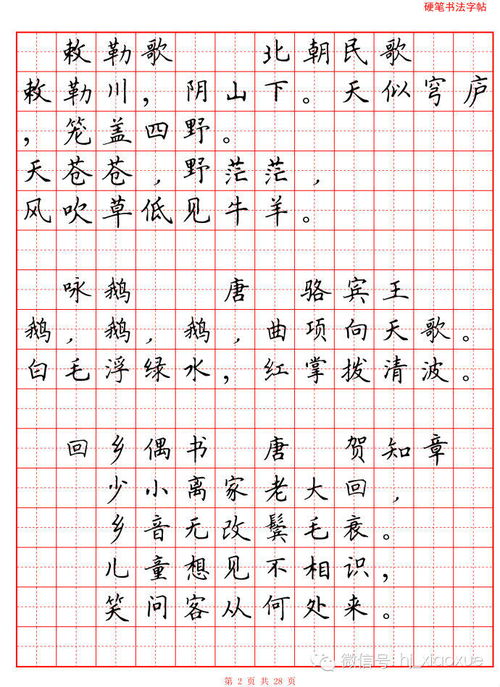 硬笔书法字帖
敕勒歌 北朝民歌
敕勒川，阴山下。天似穹庐
，笼盖四野。
天苍苍，野茫茫，
风吹草低见牛羊。
咏鹅 唐 骆宾王
鹅，鹅，鹅，曲项向天歌。
白毛浮绿水，红掌拨清波。
回乡偶书 唐 贺知章
少小离家老大回，
乡音无改鬓毛衰。
儿童想见不相识，
笑问客从何处来。
微信号: hll_xiaoxue
第 2 页 共 28 页